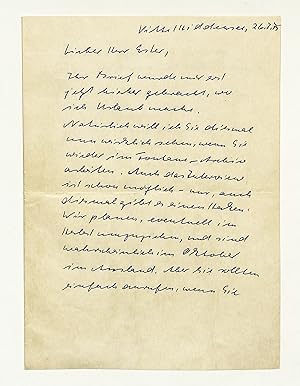 Vitte/Hiddensee, 26.7.85
Lieber Herr Erler,
Ihr Brief wurde mir erst
jetzt hierher gebracht, wo
ich Urlaub mache.
Natürlich will ich Sie diesmal
nun wirklich sehen, wenn Sie
wieder im Fontane-Archiv
arbeiten. Auch das Interview
ist schon möglich - nur, auch
diesmal gibt es einen Haken.
Wir planen, eventuell im
Herbst umzuziehen, und sind
wahrscheinlich im Oktober
im Ausland. Aber Sie sollten
einfach anrufen, wenn Sie